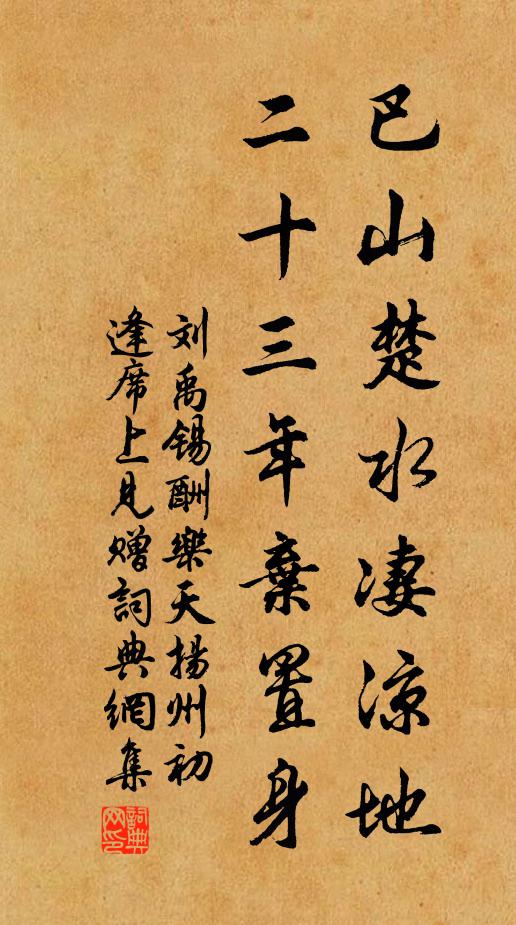 巴山楚水凄涼地
二十三年棄置身
刘禹锡酬樂天揚州初
逢席上見贈詞典網集
詞典網印